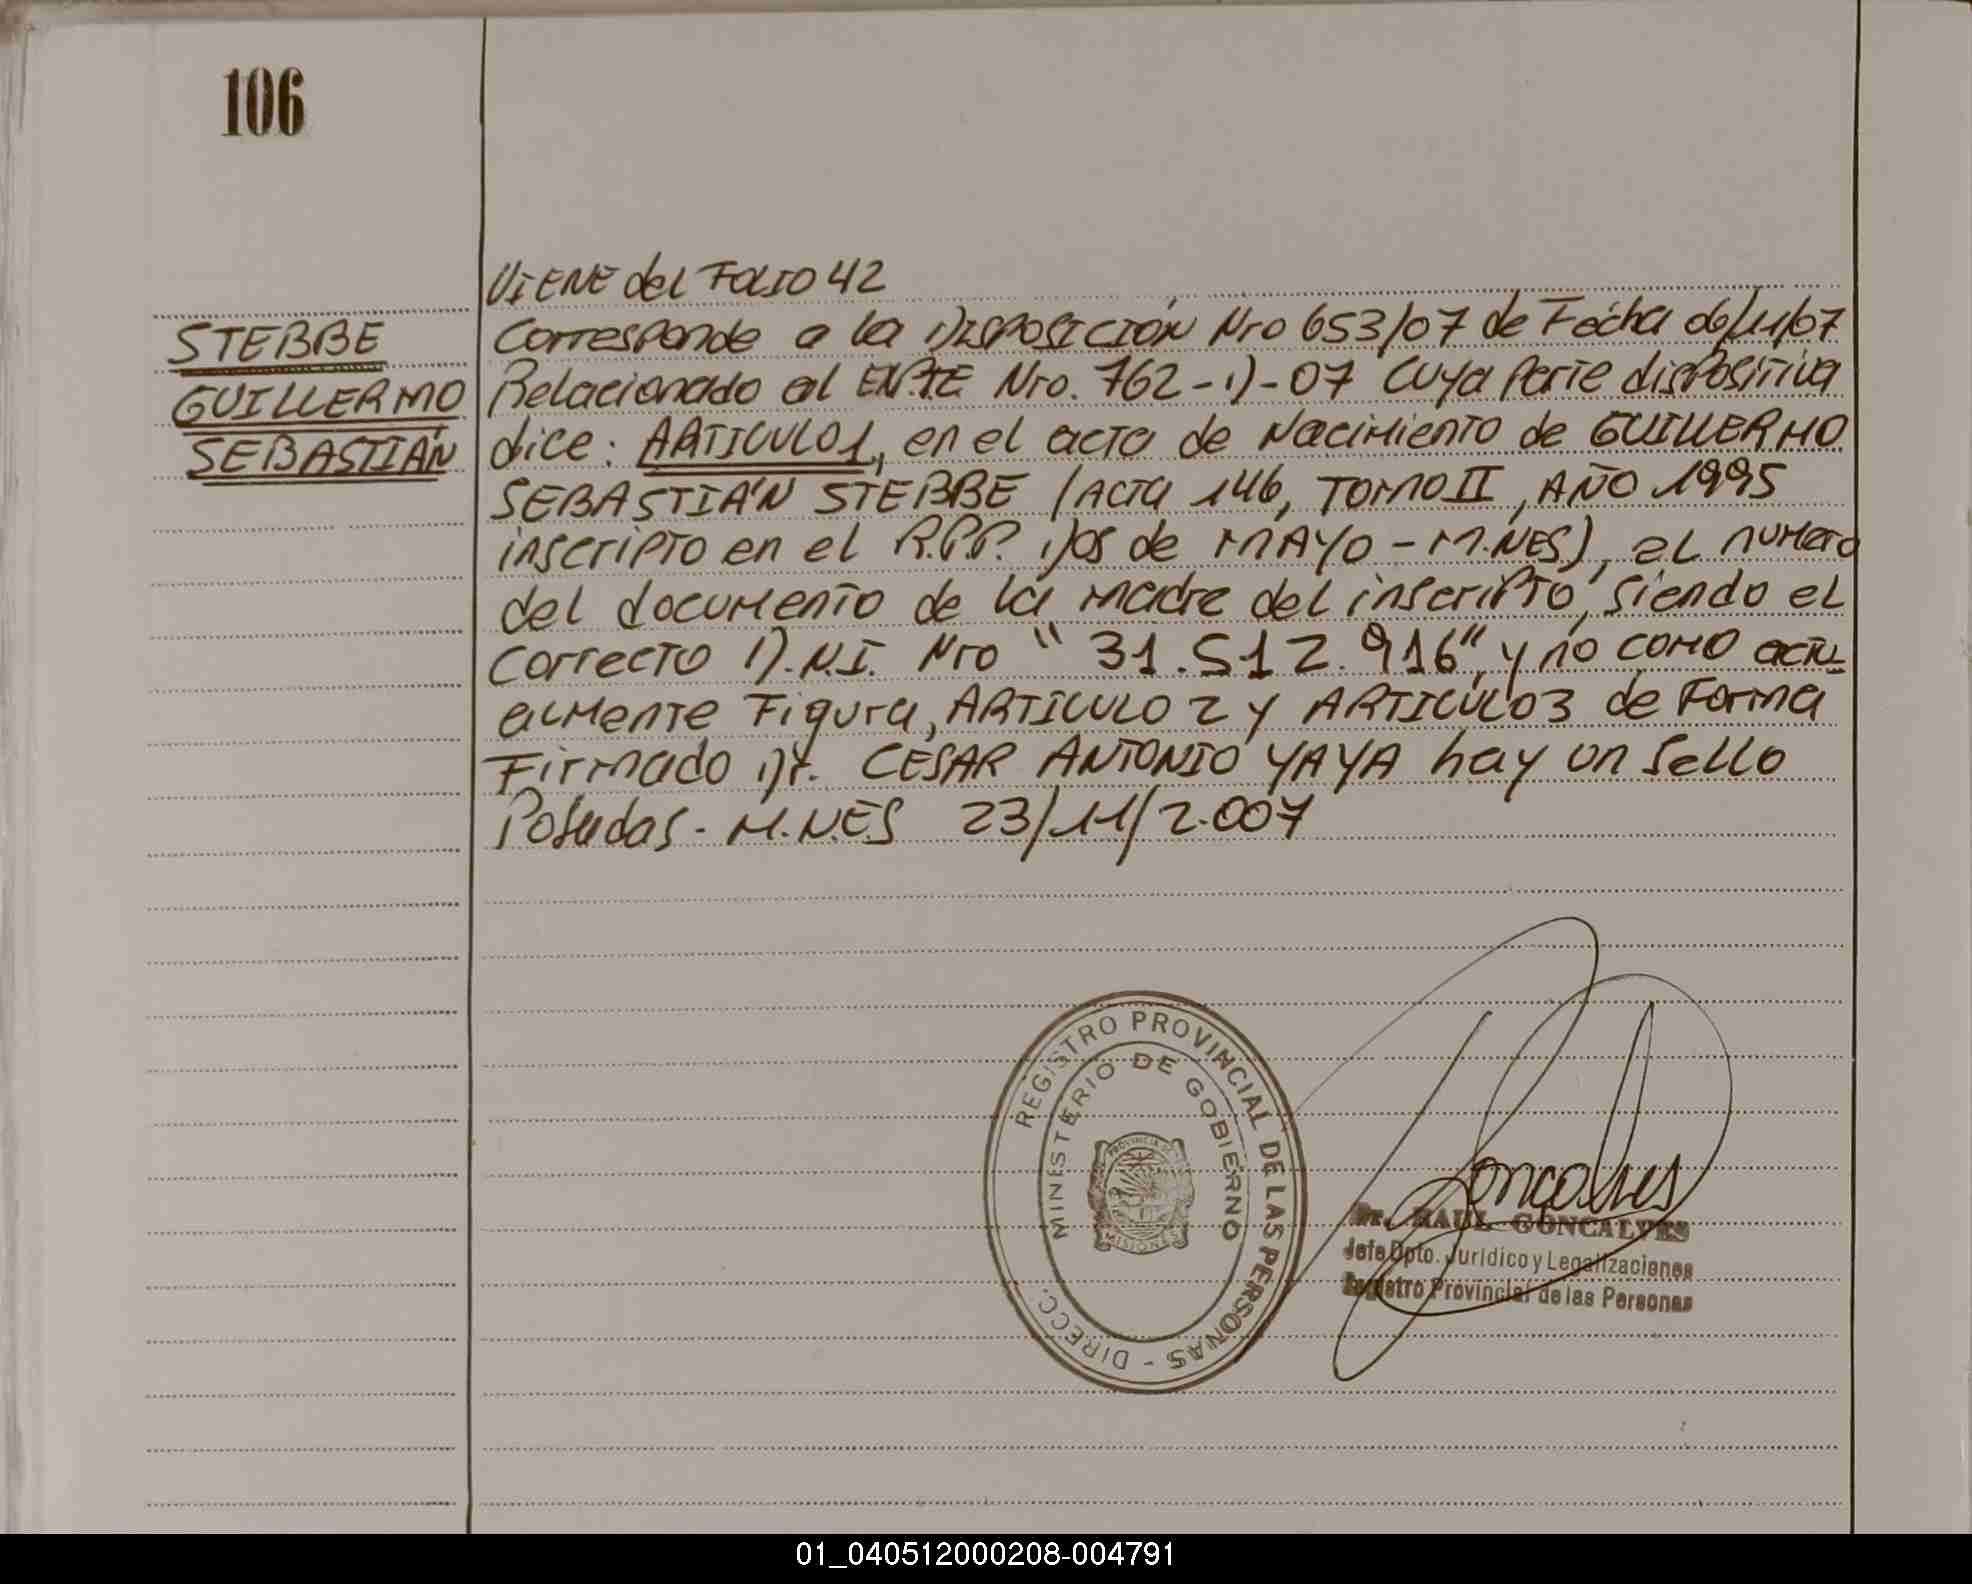 106
VIENE del FOLIO 42
STEBBE
GUILLERMO
SEBASTIÁN
Corresponde a la DISPOSICIÓN Nro 653/07 de Fecha 06/11/07
Relacionado al EXPTE Nro. 762-D-07 Cuya Parte dispositiva
dice: ARTICULO 1, en el acta de Nacimiento de GUILLERMO
SEBASTIÁN STEBBE (ACTA 146, TOMO II, AÑO 1995
inscripto en el R.P.P. Dos de MAYO - M.NES), el numero
del documento de la madre del inscripto, siendo el
correcto D.N.I. Nro "31.512.916", y no como actu-
almente Figura, ARTICULO 2 y ARTICULO 3 de Forma
Firmado Dr. CESAR ANTONIO YAYA hay un Sello
Posadas - M.N.E.S 23/11/2.007
REGISTRO PROVINCIAL DE LAS PERSONAS - DIRECC.
MINISTERIO DE GOBIERNO
PROVINCIA DE
MISIONES
Gonçalves
Dr. RAUL GONCALVES
Jefe Dpto. Jurídico y Legalizaciones
Registro Provincial de las Personas
01_040512000208-004791